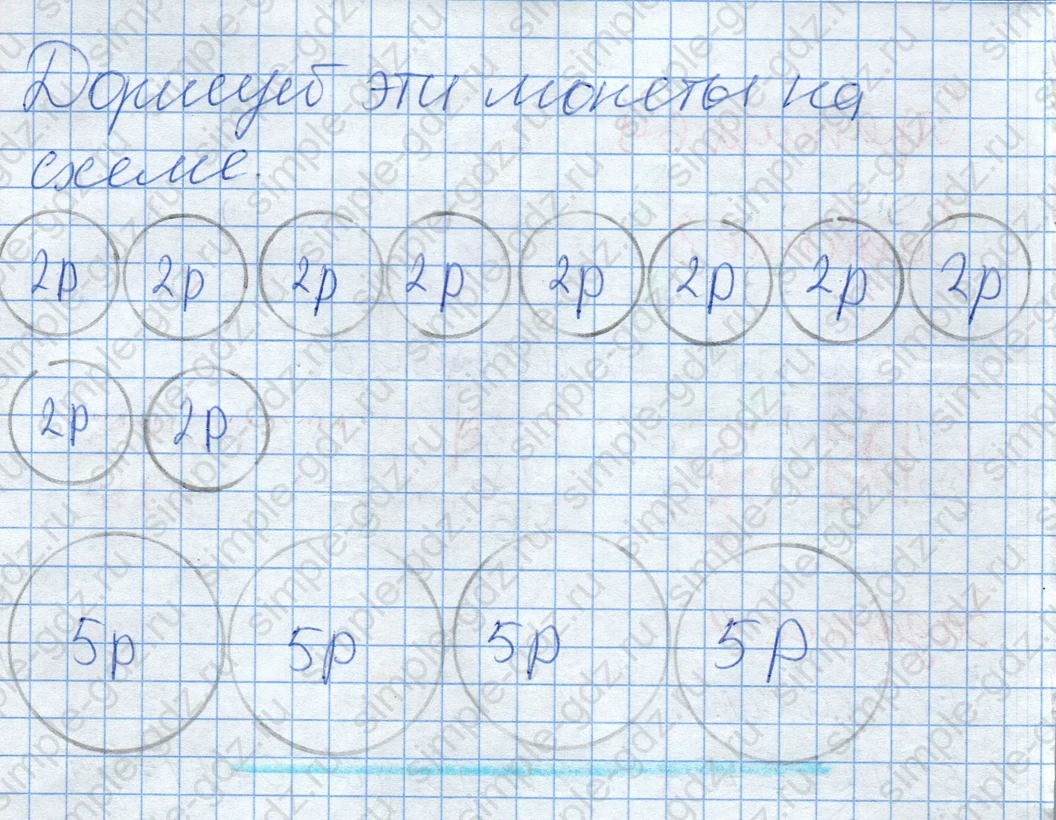 Дорисуй эти монеты на
схеме.
2р 2р 2р 2р 2р 2р 2р 2р
2р 2р
5р 5р 5р 5р
simple-gdz.ru